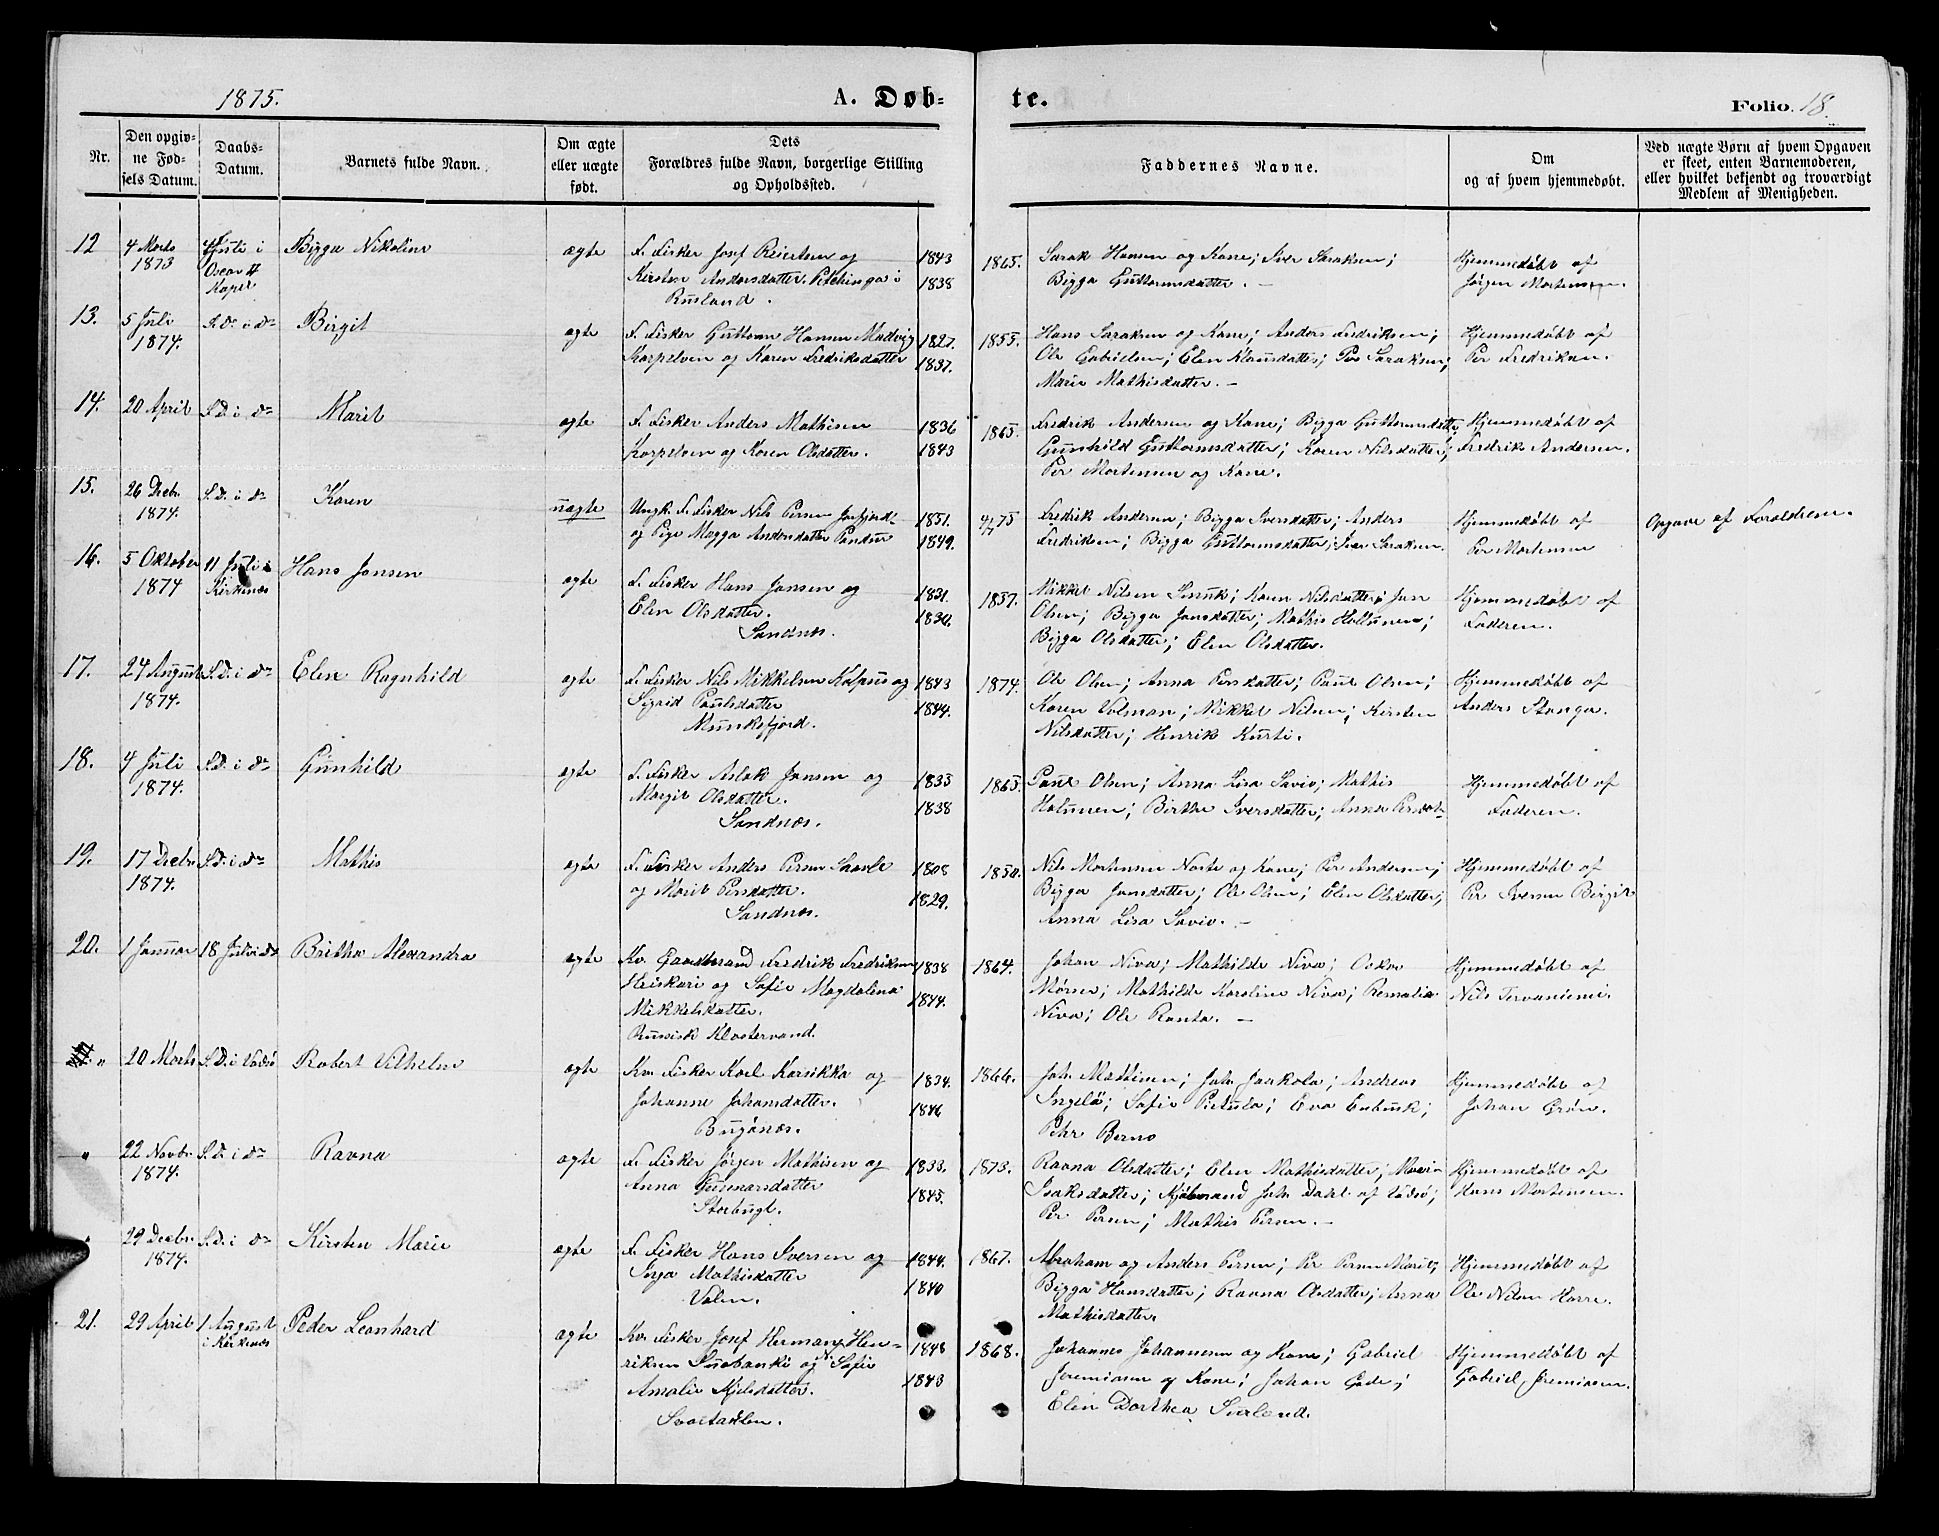 1875.
A. Døb-
te.
Folio. 18.
Nr.
Den opgiv-
ne Fød-
sels Datum.
Daabs-
Datum.
Barnets fulde Navn.
Om ægte
eller uægte
født.
Dets
Forældres fulde Navn, borgerlige Stilling
og Opholdssted.
Faddernes Navne.
Om
og af hvem hjemmedøbt.
Ved uægte Børn af hvem Opgaven
er skeet, enten Barnemoderen,
eller hvilket bekjendt og troværdigt
Medlem af Menigheden.
12
4 Marts
1873
4 Juli i
Oscar II
Kapel
Bigga Nikoline
ægte
F. Fisker Josef Reiersen og
Kirsten Andersdatter. Pitschinga i
Rusland.
1843
1838
1865.
Sarak Hansen og Kone; Iver Saraksen;
Bigga Guttormsdatter. —
Hjemmedøbt af
Jørgen Mortensen.
13.
5 Juli
1874.
S. D. i do
Birgit
ægte
F. Fisker Guttorm Hansen Madvig
Karpelven og Karen Fredriksdatter
1827.
1837.
1855.
Hans Saraksen og Kone; Anders Fredriksen;
Ole Gabrielsen; Elen Klausdatter; Per Saraksen;
Marie Mathisdatter. —
Hjemmedøbt af
Per Fredriksen.
14.
20 April
S. D. i do
Marit
ægte
F. Fisker Anders Mathisen
Karpelven og Karen Olsdatter.
1836
1843
1865.
Fredrik Andersen og Kone; Bigga Guttormsdatter;
Gunhild Guttormsdatter; Karen Nilsdatter;
Per Mortensen og Kone.
Hjemmedøbt af
Fredrik Andersen.
15.
26 Decbr.
1874.
S. D. i do
Karen
uægte
Ungk. F. Fisker Nils Persen Jarfjord
og Pige Magga Andersdatter
1851.
1849.
4/7 75
Fredrik Andersen; Bigga Iversdatter; Anders
Fredriksen; Bigga Guttormsdatter; Iver Saraksen
Hjemmedøbt af
Per Mortensen
Opgave af Forældrene.
16.
5 Oktober
1874
11 Juli i
Kirkenæs
Hans Jansen
ægte
F. Fisker Hans Jansen og
Elen Olsdatter.
Sandnæs.
1831.
1830.
1857.
Mikkel Nilsen Smuk; Karen Nilsdatter; Jan
Olsen; Bigga Jansdatter; Mathis Holtunen;
Bigga Olsdatter; Elen Olsdatter.
Hjemmedøbt af
Faderen.
17.
24 August
1874.
S. D. i do
Elen Ragnhild
ægte
F. Fisker Nils Mikkelsen Kalpus og
Sigrid Paulsdatter
Munkefjord.
1843
1844.
1874.
Ole Olsen; Anna Persdatter; Paul Olsen;
Karen Volman; Mikkel Nilsen; Kirsten
Nilsdatter; Henrik Kurti.
Hjemmedøbt af
Anders Stanga.
18.
4 Juli
1874.
S. D. i do
Gunhild
ægte
F. Fisker Aslak Jansen og
Margit Olsdatter.
Sandnæs.
1833
1838
1865.
Paul Olsen; Anna Lisa Savio; Mathis
Halunen; Birthe Iversdatter; Anna Persdat-
Hjemmedøbt af
Faderen.
19.
17 Decbr.
1874.
S. D. i do
Mathis
ægte
F. Fisker Anders Persen
og Marit Persdatter.
Sandnæs.
1808
1829.
1850.
Nils Mortensen Norte og Kone; Per Andersen;
Bigga Jansdatter; Ole Olsen; Elen Olsdatter;
Anna Lisa Savio. —
Hjemmedøbt af
Per Iversen Birgit
20.
1 Januar
18 Juli i do
Britha Alexandra
ægte
Kv. Gaardmand Fredrik Fredriksen
Heiskari og Sofie Magdalina
Mikkelsdatter.
Russisk Klostervand.
1838
1844.
1864.
Johan Niva; Mathilde Niva; Oskar
Mørse; Mathilde Karoline Niva; Remalia
Niva; Ole Ranta. —
Hjemmedøbt af
Nils Tervaniemi.
"
20 Marts
S. D. i Vadsø
Robert Vilhelm
ægte
Kv. Fisker Karl Karsikka og
Johanne Johansdatter.
Bugønæs.
1834.
1846
1866.
Joh. Mathisen; Joh. Jaakola; Andreas
Ingelä; Sofie Pietula; Eva Enbusk;
Petr Berno
Hjemmedøbt af
Johan Grøn.
"
22 Novbr.
1874.
S. D. i do
Ravna
ægte
F. Fisker Jørgen Mathisen og
Anna Gunnarsdatter
Storbugt.
1833.
1845.
1873.
Ravna Olsdatter; Elen Mathisdatter; Mari-
Isaksdatter; Kjøbmand Joh. Dahl af Vadsø;
Per Persen; Mathis Persen. —
Hjemmedøbt af
Hans Mortensen.
"
29 Decbr.
1874.
S. D. i do
Kirsten Marie
ægte
F. Fisker Hans Iversen og
Inga Mathisdatter
Valen.
1844.
1840
1867.
Abraham og Anders Persen; Per Persen Marit;
Bigga Hansdatter; Ravna Olsdatter; Anna
Mathisdatter.
Hjemmedøbt af
Ole Nilsen Harre.
21.
29 April
1 August
i Kirkenæs
Peder Leonhard
ægte
Kv. Fisker Josef Herman Hen-
riksen Suobanki og Sofie
Amalie Kjelsdatter.
Svartaklen.
1848
1843
1868.
Johannes Johannesen og Kone; Gabriel
Jeremiasen og Kone; Johan Gade;
Elen Dorthea Sverland.
Hjemmedøbt af
Gabriel Jeremiasen.